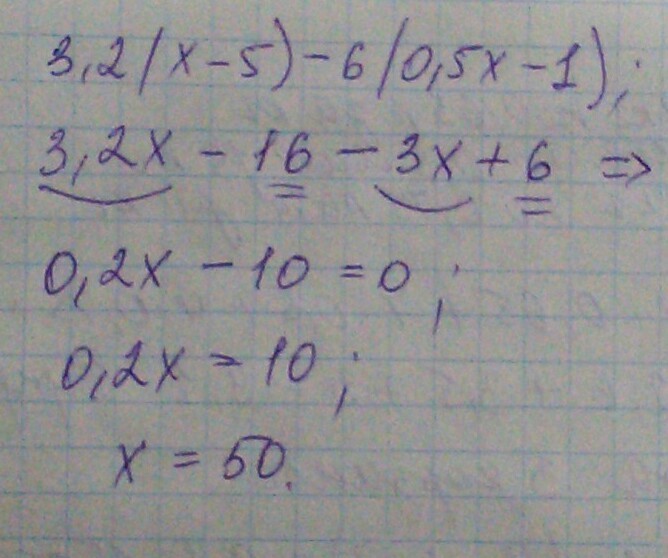 3,2(x-5)-6(0,5x-1);
3,2x - 16 - 3x + 6 =>
0,2x - 10 = 0;
0,2x = 10;
x = 50.